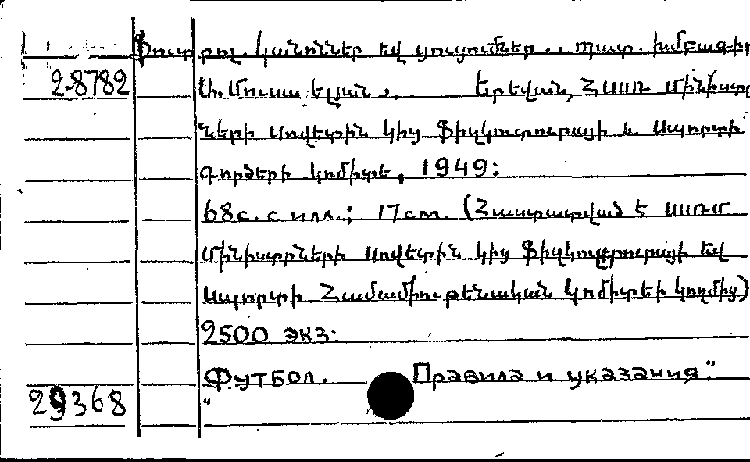 Ֆուտբոլ. կանոններ եվ ցուցումներ.. պատ. խմբագիր
2-8782 Ա. Մուսաելյան.. Երեվան, ՀՍՍՌ Մինիստր
ների Սովետին կից Ֆիզկուլտուրայի և Սպորտի
Գործերի կոմիտե, 1949:
68с. с илл.; 17см. (Հաստատված է ՍՍՌՄ
Մինիստրների Սովետին կից Ֆիզկուլտուրայի եվ
Սպորտի Համամիութենական կոմիտեի կողմից)
2500 экз.
„Футбол. Правила и указания“
29368